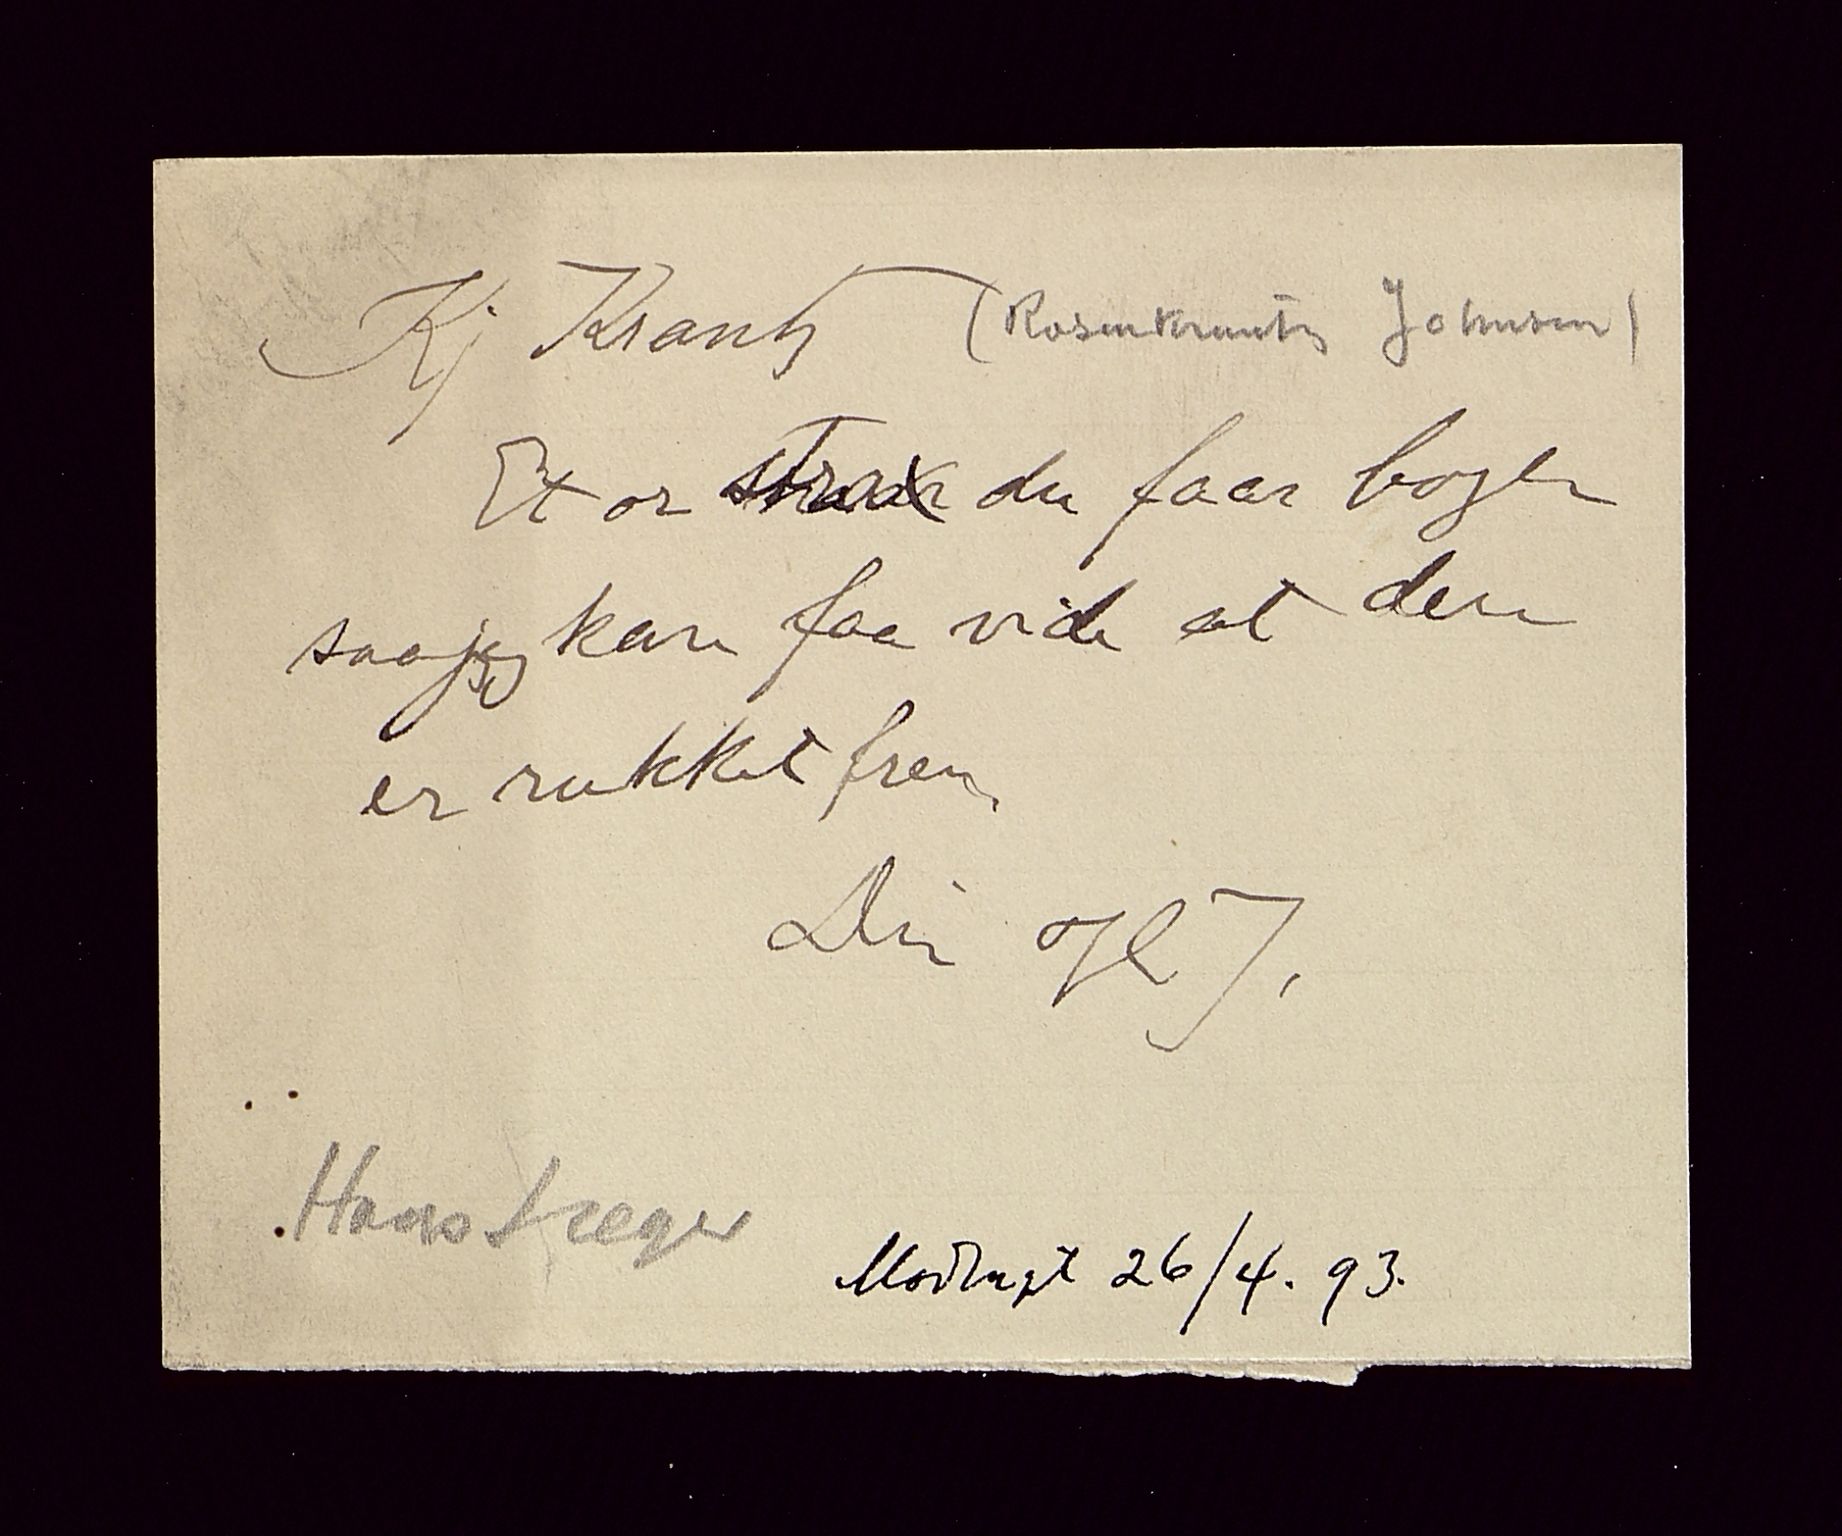 Kj Krantz (Rosenkrantz Johnsen)
Et or strax du faar bogen
saa jeg kan faa vide at den
er rukket frem.
Din HJ.
Hans Jæger
Modtagt 26/4. 93.